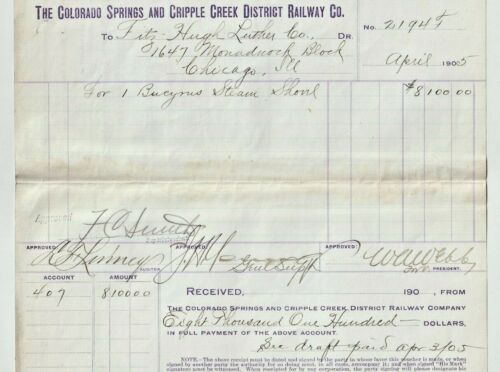 THE COLORADO SPRINGS AND CRIPPLE CREEK DISTRICT RAILWAY CO.
To Fitz-Hugh Luther Co., DR.
No. 21947
1647 Monadnock Block
Chicago, Ill
April 1905
For 1 Bucyrus Steam Shovel $8100.00
Approved
APPROVED: APPROVED: APPROVED:
AUDITOR. Genl Supt PRESIDENT.
ACCOUNT AMOUNT
407 810000
RECEIVED, 190 , FROM
THE COLORADO SPRINGS AND CRIPPLE CREEK DISTRICT RAILWAY COMPANY
Eight Thousand One Hundred DOLLARS,
IN FULL PAYMENT OF THE ABOVE ACCOUNT.
See draft paid Apr 3/05
NOTE.—The above receipt must be dated and signed by the party in whose favor this voucher is made, or when
signed by another party the authority for so doing must, in all cases, accompany it. When signed by "His Mark"
signature must be witnessed. When receipted for by a corporation, the party signing will please designate his